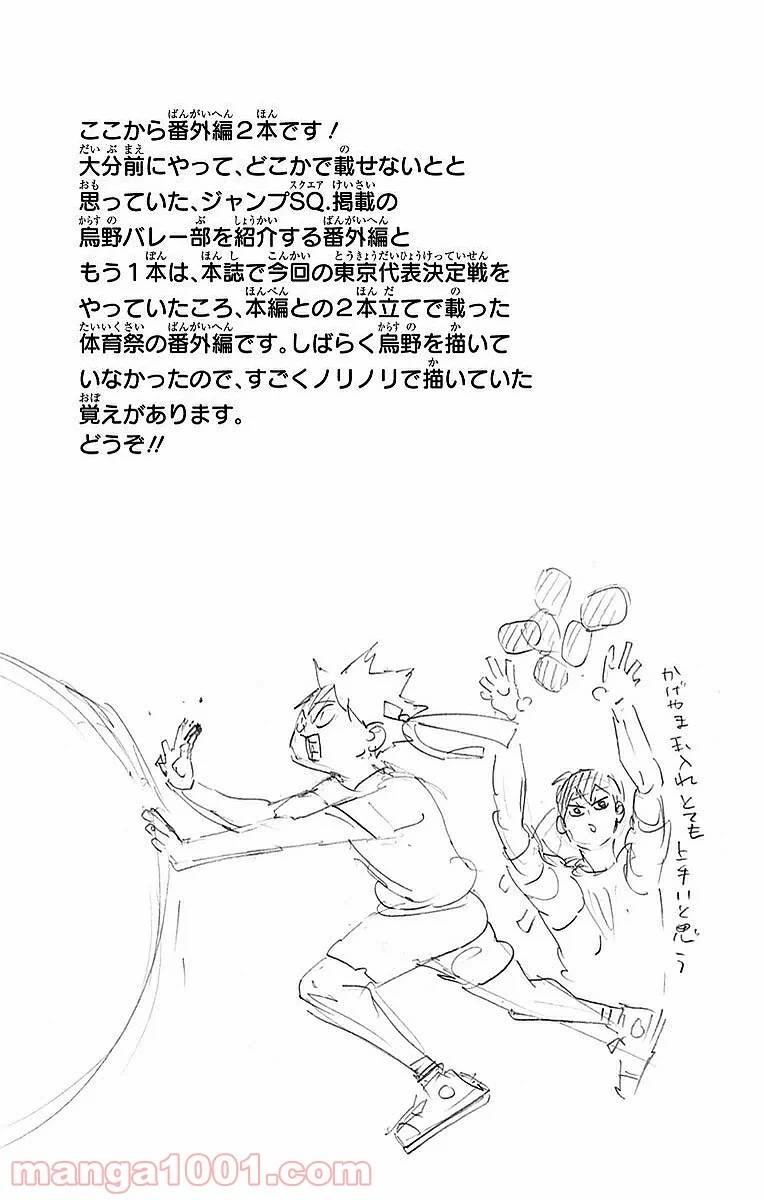 ここから番外編２本です！
大分前にやって、どこかで載せないとと
思っていた、ジャンプSQ.掲載の
烏野バレー部を紹介する番外編と
もう１本は、本誌で今回の東京代表決定戦を
やっていたころ、本編との２本立てで載った
体育祭の番外編です。しばらく烏野を描いて
いなかったので、すごくノリノリで描いていた
覚えがあります。
どうぞ!!
かげやま玉入れとても上手いと思う
manga1001.com